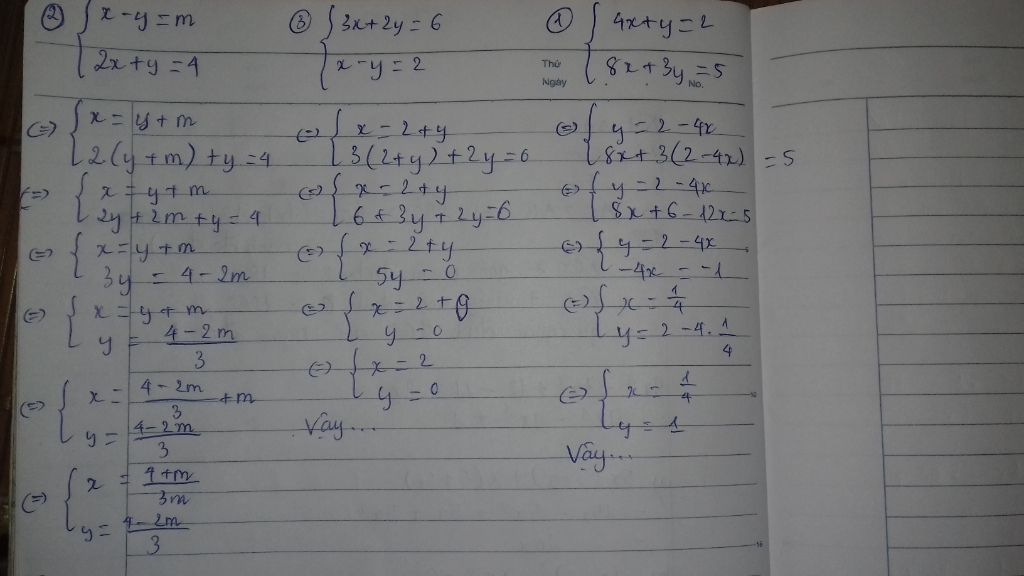 ② { x - y = m
2x + y = 4
(=) { x = y + m
2(y + m) + y = 4
(=) { x = y + m
2y + 2m + y = 4
(=) { x = y + m
3y = 4 - 2m
(=) { x = y + m
y = (4 - 2m)/3
(=) { x = (4 - 2m)/3 + m
y = (4 - 2m)/3
(=) { x = (4 + m)/3m
y = (4 - 2m)/3
③ { 3x + 2y = 6
x - y = 2
(=) { x = 2 + y
3(2 + y) + 2y = 6
(=) { x = 2 + y
6 + 3y + 2y = 6
(=) { x = 2 + y
5y = 0
(=) { x = 2 + 0
y = 0
(=) { x = 2
y = 0
Vậy...
① { 4x + y = 2
8x + 3y = 5
Thứ
Ngày
No.
(=) { y = 2 - 4x
8x + 3(2 - 4x) = 5
(=) { y = 2 - 4x
8x + 6 - 12x = 5
(=) { y = 2 - 4x
-4x = -1
(=) { x = 1/4
y = 2 - 4 . 1/4
(=) { x = 1/4
y = 1
Vậy...